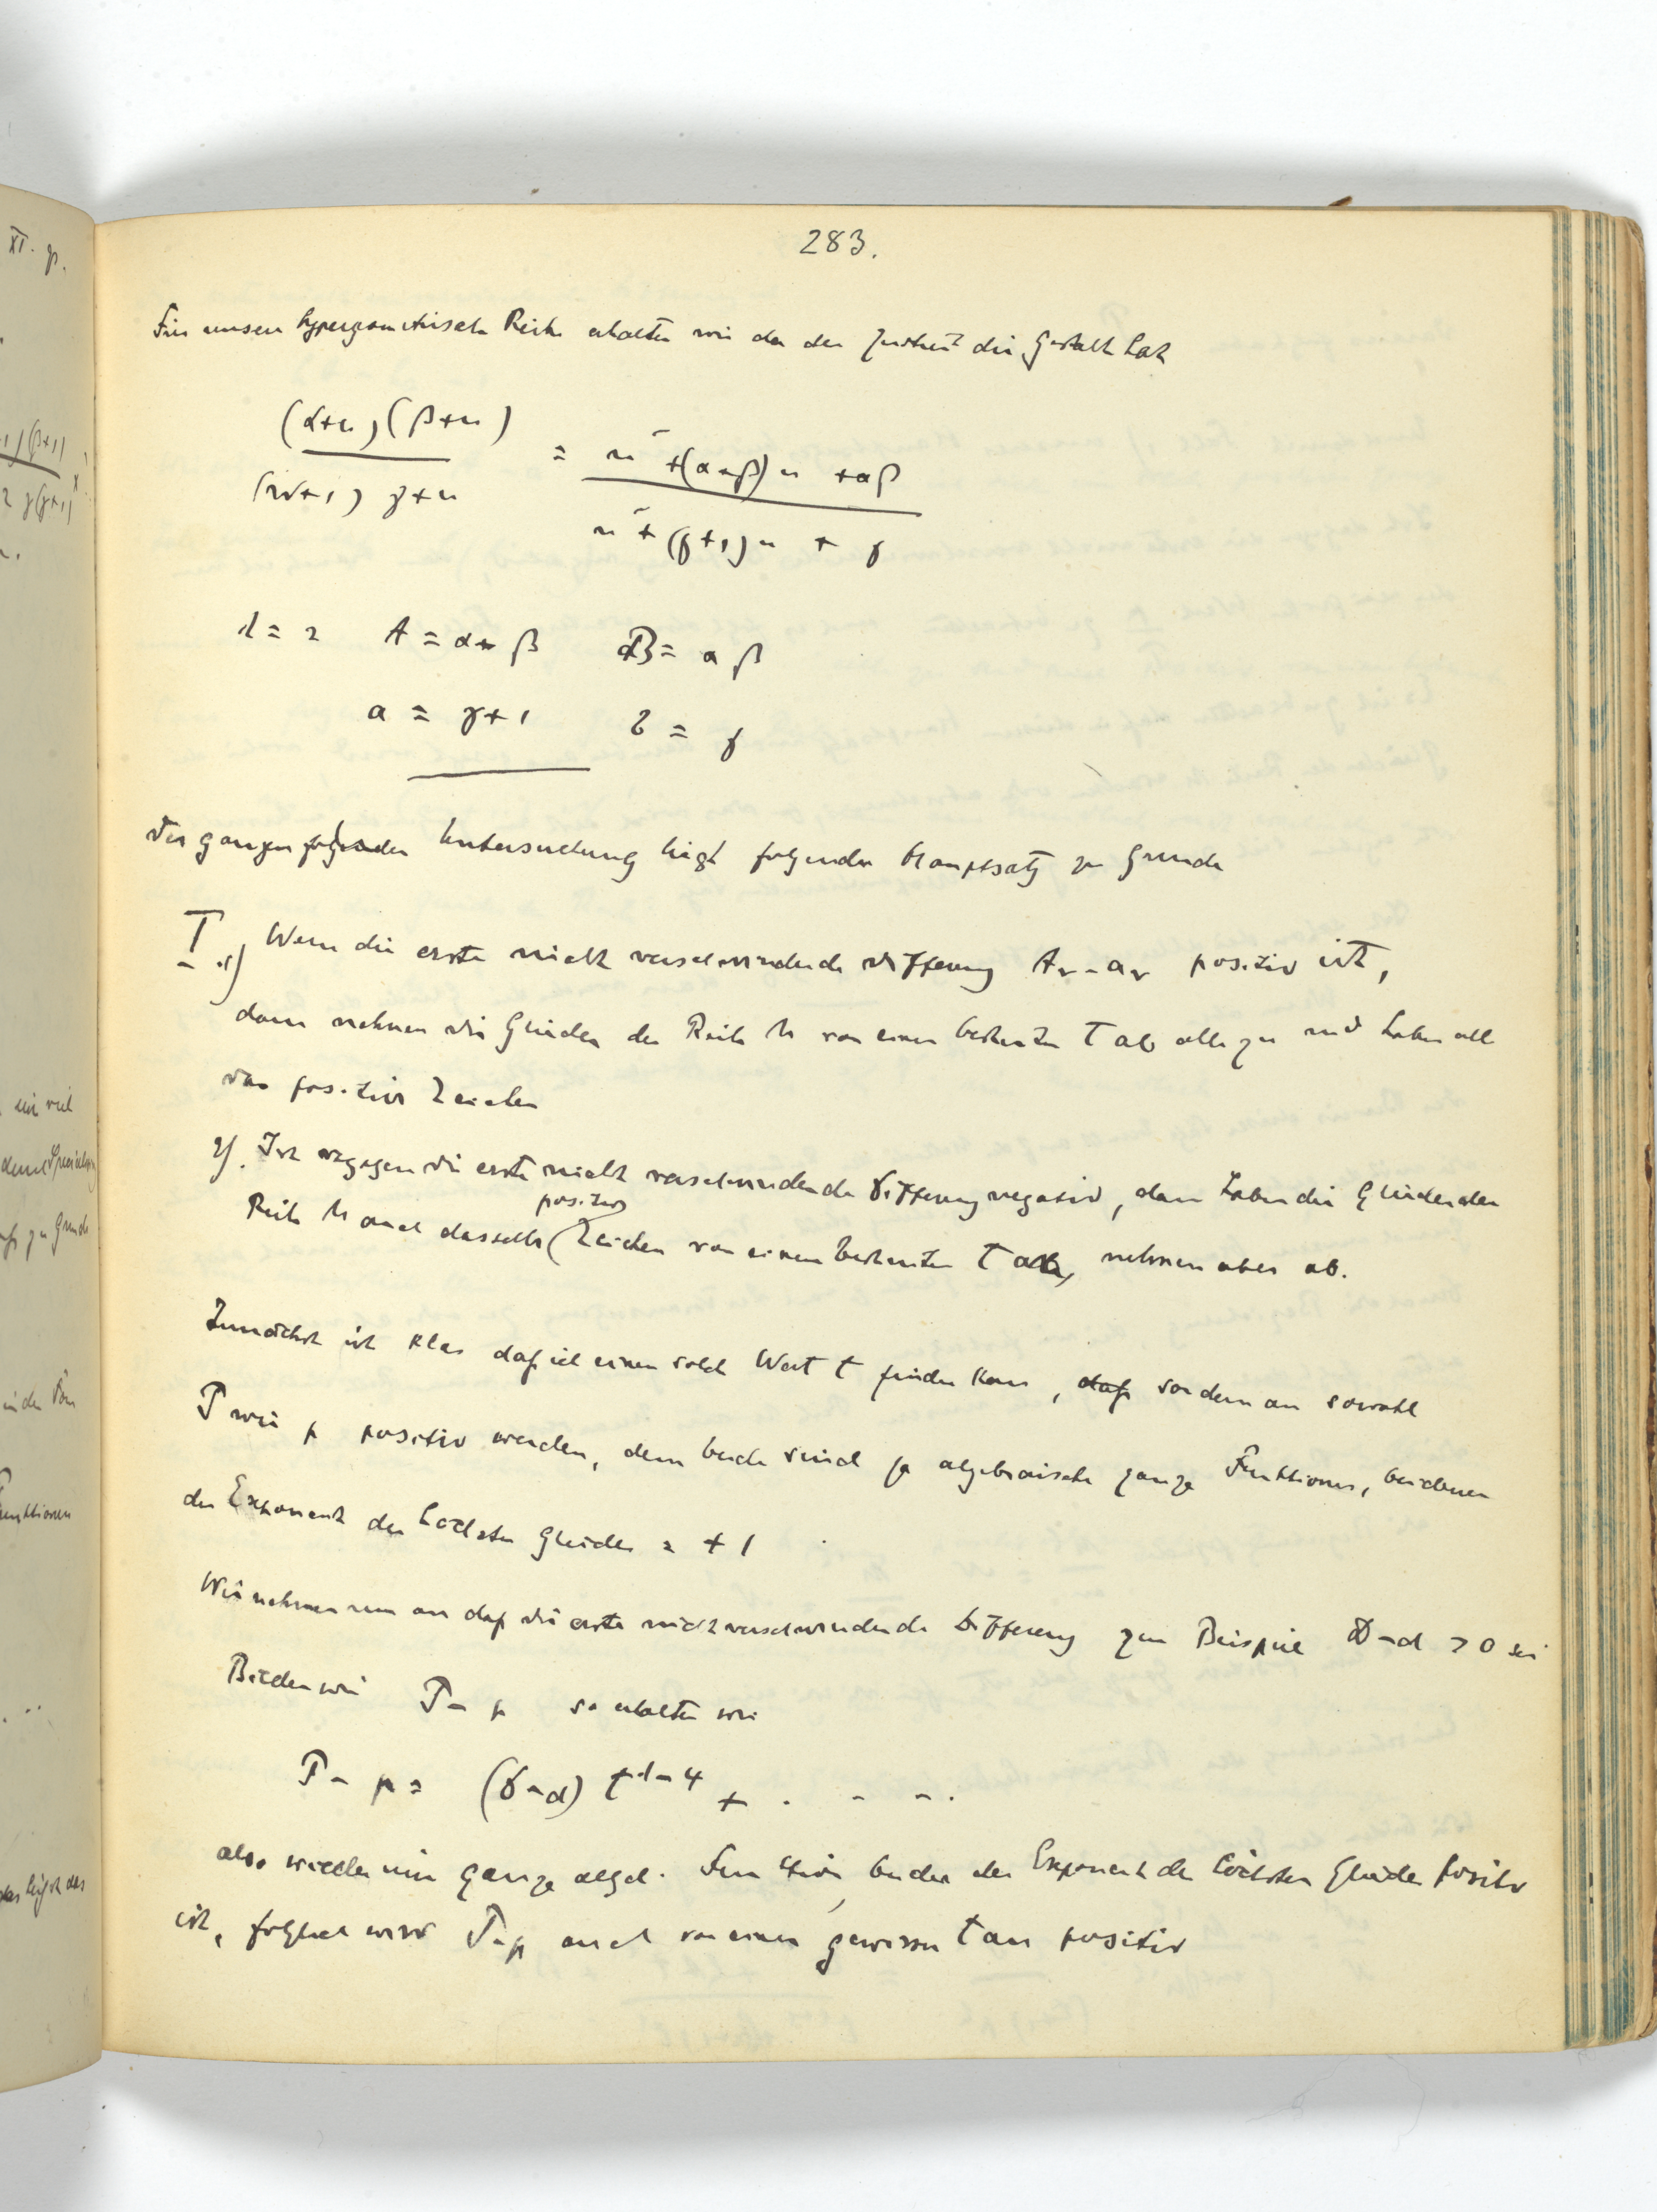 283.
Für unsere hypergeometrische Reihe erhalten wir da der Quotient die Gestalt hat
(α+n)(β+n) / (n+1) γ+n = n² + (α+β)n + αβ / n² + (γ+1)n + γ
λ = 2 A = α+β B = αβ
a = γ+1 b = γ
Der ganzen folgenden Untersuchung liegt folgender Hauptsatz zu Grunde
I. 1) Wenn die erste nicht verschwindende Differenz Aᵥ - aᵥ positiv ist,
dann nehmen die Glieder der Reihe M von einem bestimten t ab alle zu und haben alle
das positive Zeichen
2). Ist dagegen die erste nicht verschwindende Differenz negativ, dann haben die Glieder der
positive
Reihe M auch dasselbe ( Zeichen von einem bestimten t ab, nehmen aber ab.
Zunächst ist klar daß ich einen solch Wert t finden kann, daß von dem an sowohl
P wie p positiv werden, denn beide sind ja algebraische ganze Funktionen, bei denen
der Exponent des höchsten Gliedes = + 1
Wir nehmen nun an daß die erste nicht verschwindende Differenz zum Beispiel D - d > 0 sei
Bilden wir P - p so erhalten wir
P - p = (D - d) t^λ-4 + . - - .
also wieder eine ganze algeb. Funktion, bei der der Exponent des höchsten Gliedes positiv
ist, folglich wird P-p auch von einem gewissen t an positiv